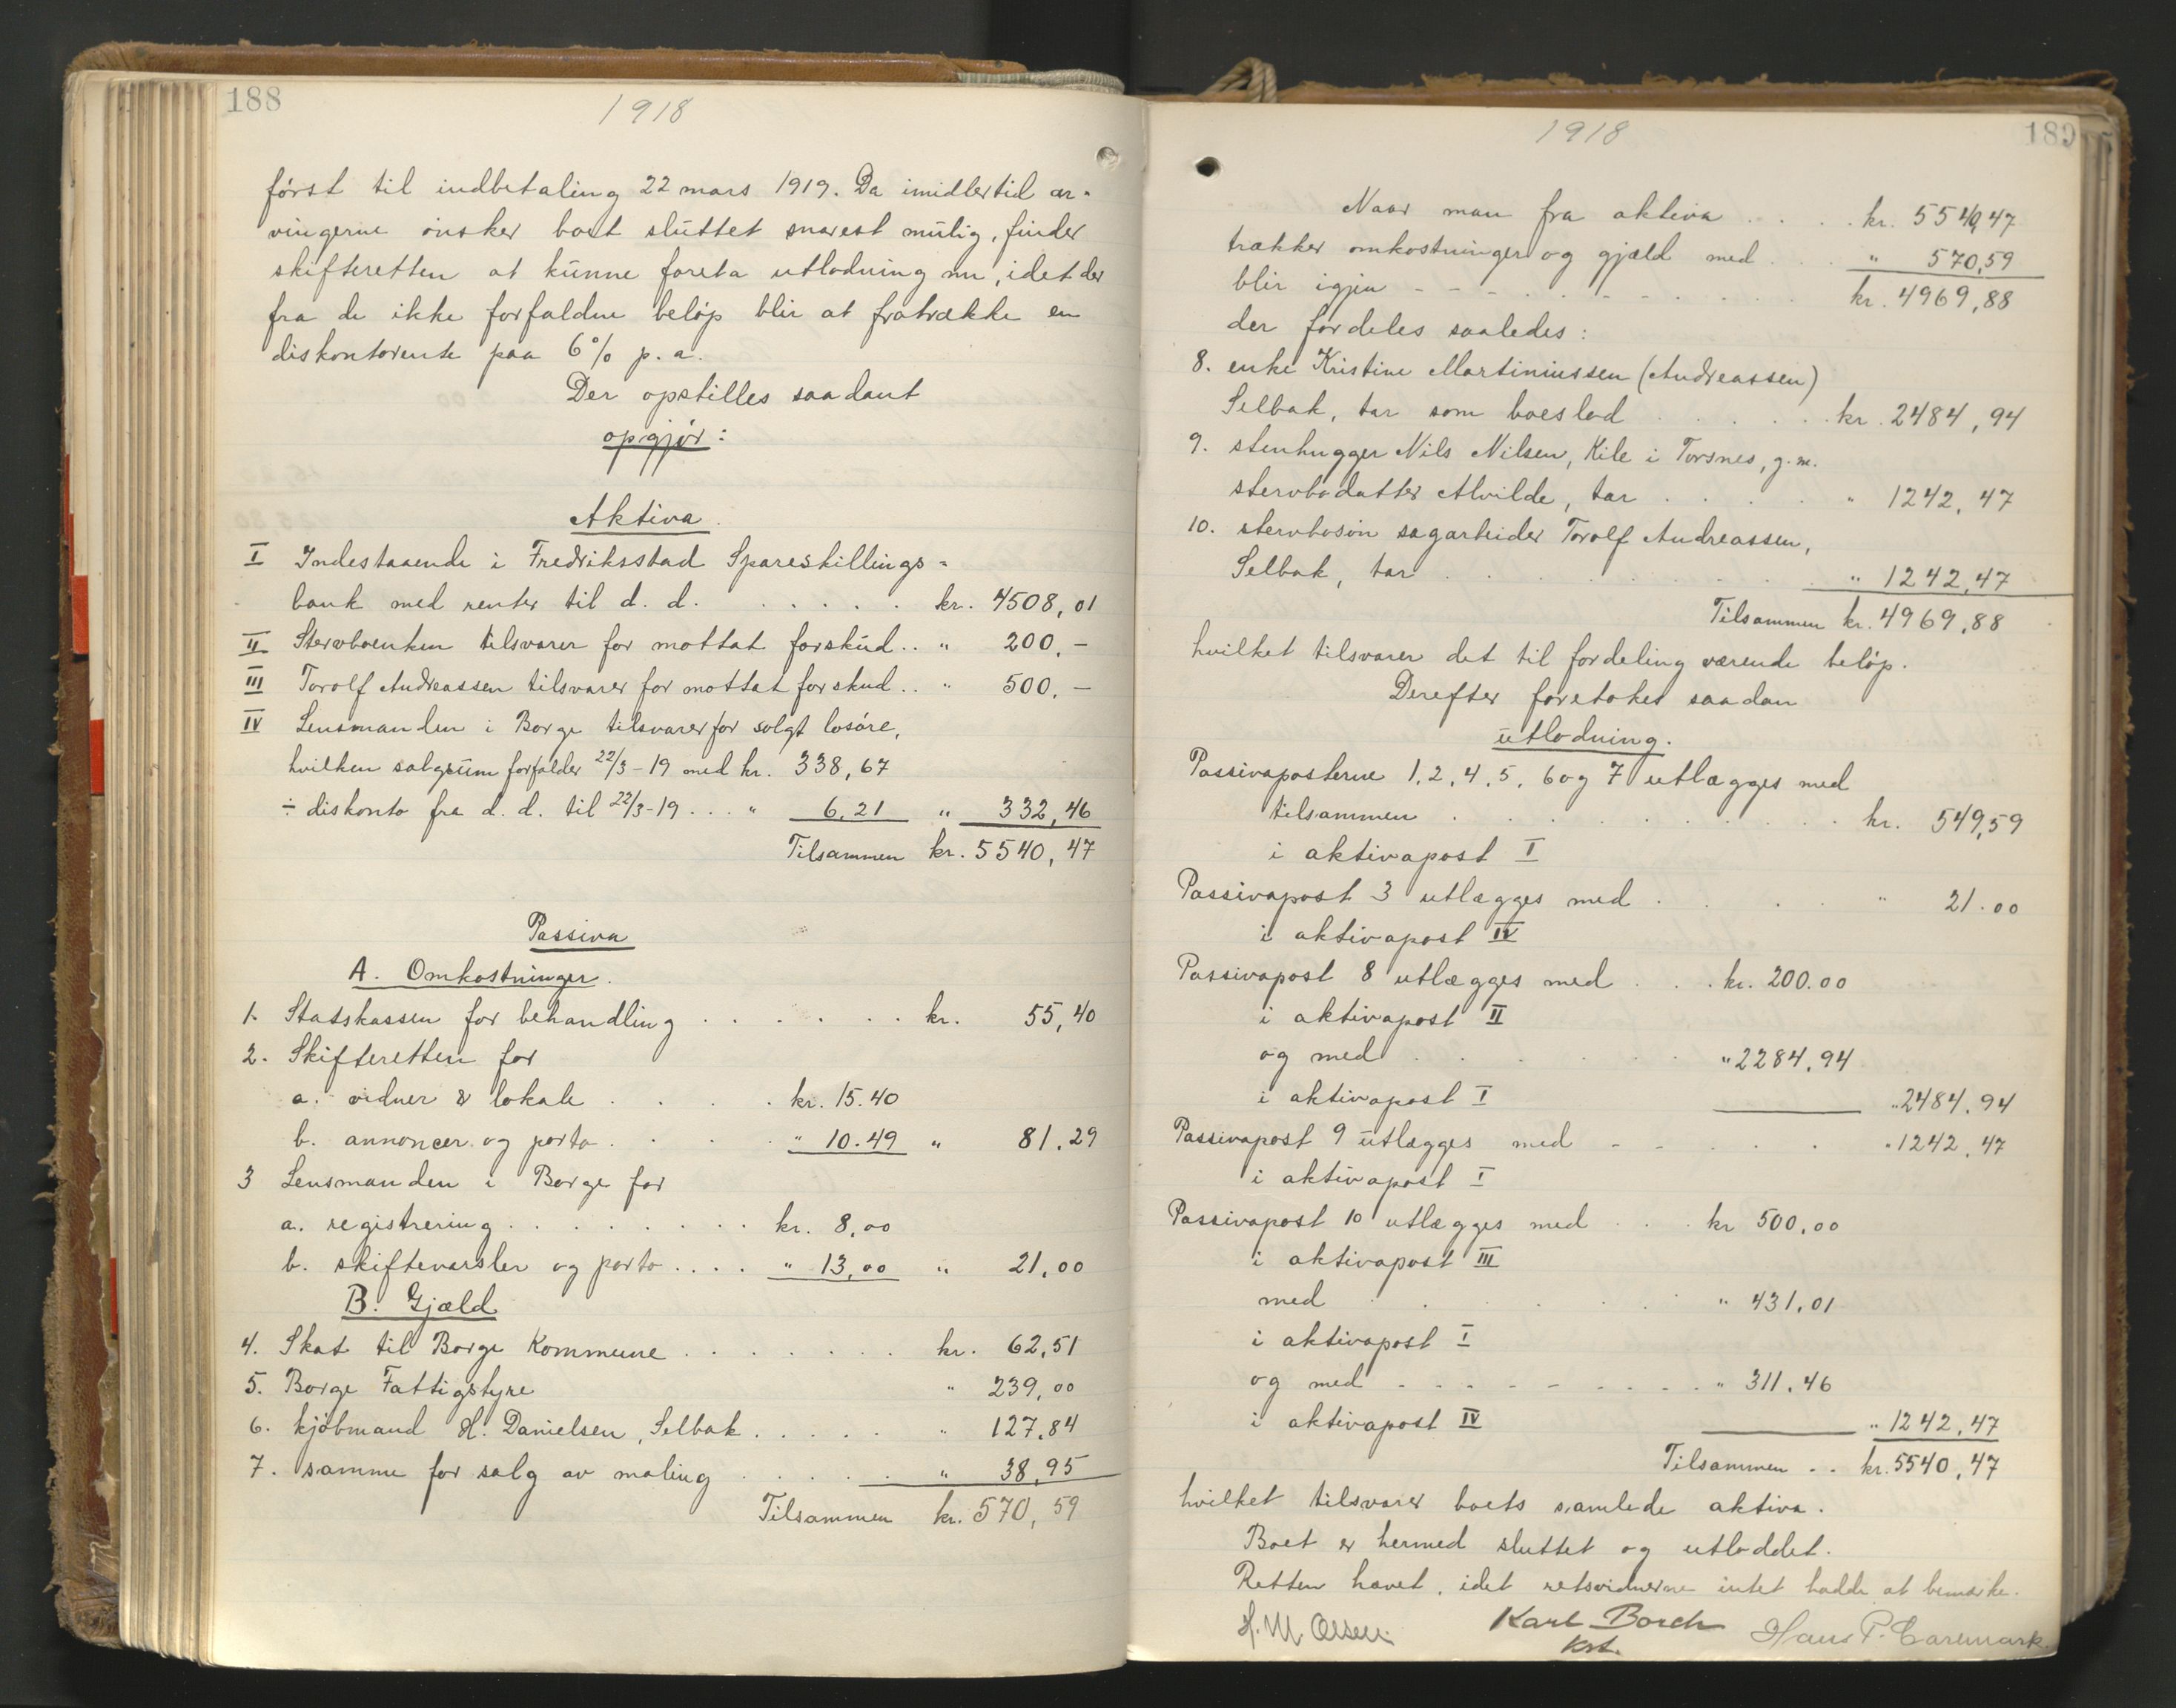 188
1918
först til indbetaling 22 mars 1919. Da imidlertid ar-
vingerne önsker boet sluttet snarest mulig, finder
skifteretten at kunne foreta utlodning nu, idet der
fra de ikke forfaldne belöp blir at fratrække en
diskontorente paa 6% p. a.
Der opstilles saadant
opgjör:
Aktiva.
I Indestaaende i Fredriksstad Spareskillings-
bank med renter til d. d. . . . . . kr. 4508,01
II Stervboenken tilsvarer for mottat forskud . . " 200.-
III Torolf Andreassen tilsvarer for mottat forskud . . " 500.-
IV Lensmanden i Borge tilsvarer for solgt losöre,
hvilken salgssum forfalder 22/3-19 med kr. 338,67
÷ diskonto fra d. d. til 22/3-19 . . . " 6.21 " 332,46
Tilsammen kr. 5540,47
Passiva
A. Omkostninger.
1. Statskassen for behandling . . . . . . kr. 55,40
2. Skifteretten for
a. vidner & lokale . . . . kr. 15.40
b. annoncer og porto . . . . " 10.49 " 81.29
3 Lensmanden i Borge for
a. registrering . . . . . . . . kr. 8,00
b. skiftevarsler og porto . . . . " 13,00 " 21,00
B. Gjæld
4. Skat til Borge Kommune . . . . . . . kr. 62,51
5. Borge Fattigstyre " 239,00
6. kjöbmand H. Danielsen, Selbak . . . . . " 127.84
7. samme for salg av maling . . . . . " 38,95
Tilsammen kr. 570,59
189
1918
Naar man fra aktiva . . . . kr. 5540,47
trækker omkostninger og gjæld med . . . " 570,59
blir igjen - - - - - - - - - - kr. 4969,88
der fordeles saaledes:
8. enke Kristine Martiniussen (Andreassen)
Selbak, tar som boeslod . . . . . . kr. 2484,94
9. stenhugger Nils Nilsen, Kile i Torsnes, g. m.
stervbodatter Alvilde, tar . . . . " 1242,47
10. stervbosön sagarbeider Torolf Andreassen,
Selbak, tar . . . . . . . . " 1242,47
Tilsammen kr. 4969,88
hvilket tilsvarer det til fordeling værende belöp.
Derefter foretokes saadan
utlodning.
Passivaposterne 1, 2, 4, 5, 6 og 7 utlægges med
tilsammen . . . . . . . . . . kr. 549,59
i aktivapost I
Passivapost 3 utlægges med . . . . " 21.00
i aktivapost IV
Passivapost 8 utlægges med . . . kr. 200.00
i aktivapost II
og med . . . . . . " 2284,94
i aktivapost I " 2484,94
Passivapost 9 utlægges med - - . . . " 1242,47
i aktivapost I
Passivapost 10 utlægges med . . . kr 500,00
i aktivapost III
med . . . . . . " 431,01
i aktivapost I
og med - - - - - - . . . . " 311.46
i aktivapost IV " 1242,47
Tilsammen . . kr. 5540,47
hvilket tilsvarer boets samlede aktiva.
Boet er hermed sluttet og utloddet.
Retten hævet, idet retsvidnerne intet hadde at bemærke.
H. M. Olsen. Karl Borch Hans P. Caremark.
kst.